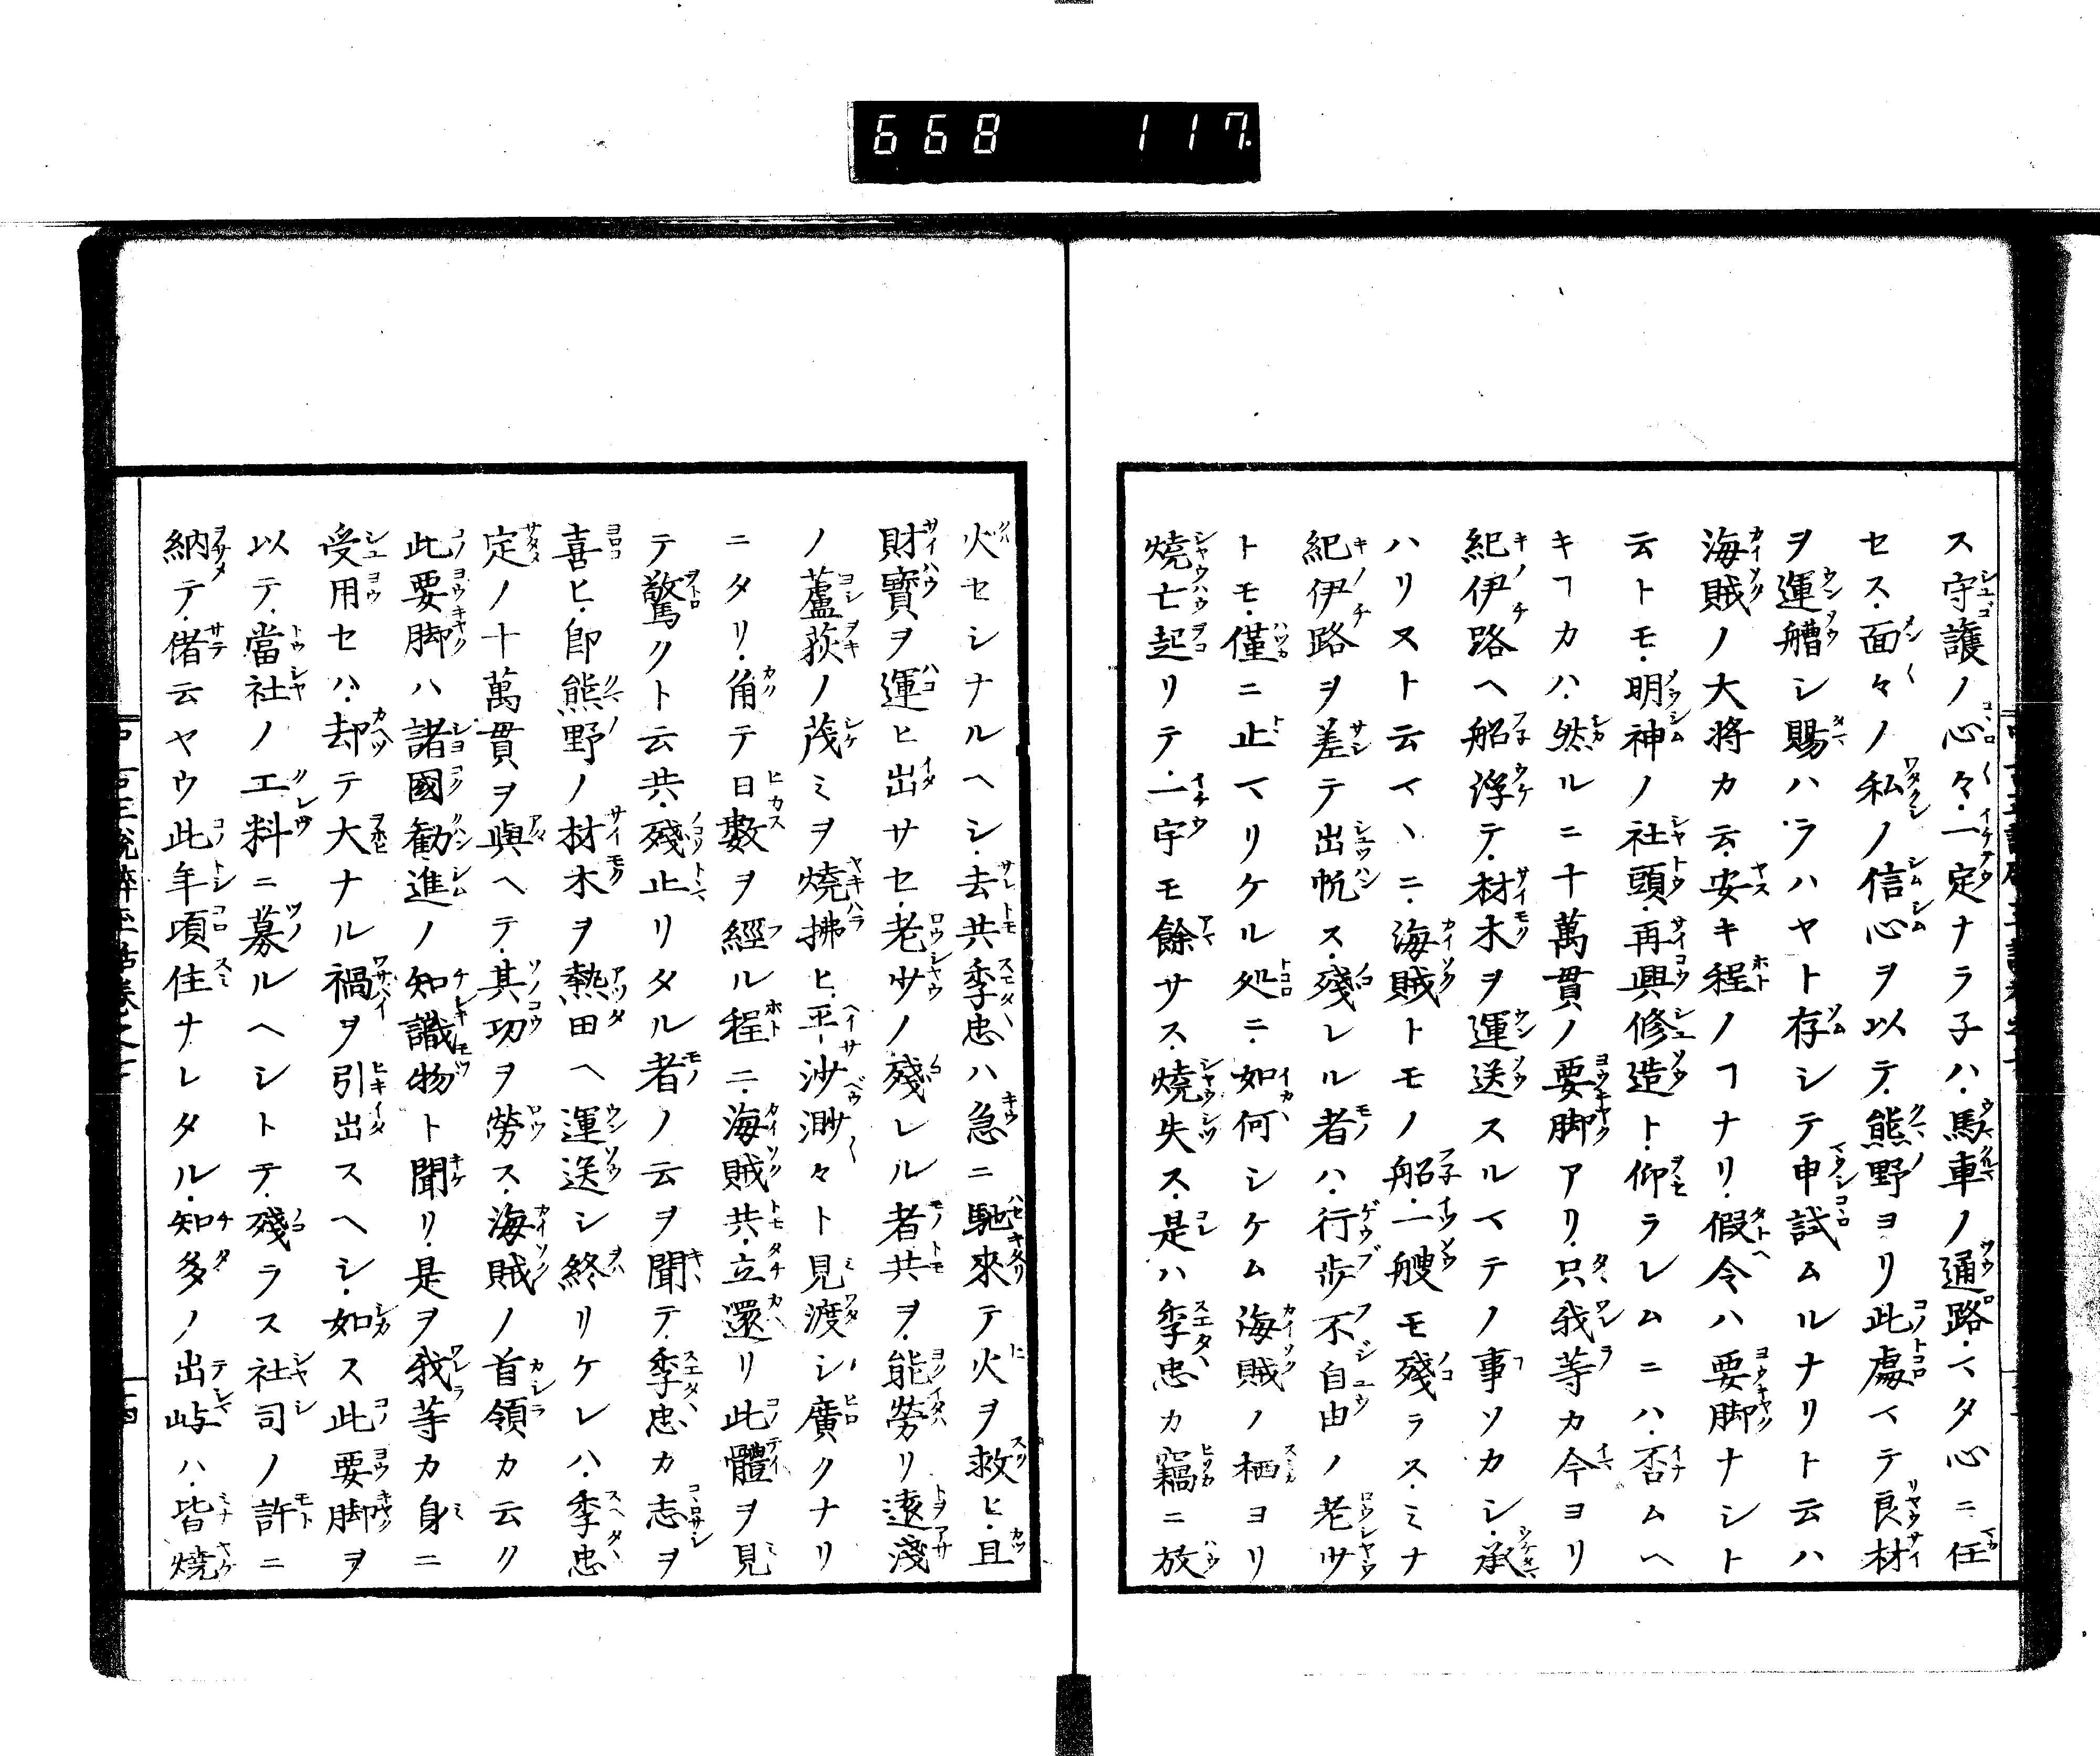 668 117.
ス守護ノ心々.一定ナラ子ハ.馬車ノ通路.マタ心ニ任
セス.面々ノ私ノ信心ヲ以テ.熊野ヨリ此處マテ良材
ヲ運艚シ賜ハラハヤト存シテ申試ムルナリト云ハ
海賊ノ大将カ云.安キ程ノヿナリ.假令ハ要脚ナシト
云トモ.明神ノ社頭.再興修造ト.仰ラレムニハ.否ムヘ
キヿカハ.然ルニ十萬貫ノ要脚アリ.只我等カ今ヨリ
紀伊路ヘ船浮テ.材木ヲ運送スルマテノ事ソカシ.承
ハリヌト云マヽニ.海賊トモノ船.一艘モ殘ラス.ミナ
紀伊路ヲ差テ出帆ス.殘レル者ハ.行歩不自由ノ老少
トモ.僅ニ止マリケル処ニ.如何シケム海賊ノ栖ヨリ
燒亡起リテ.一宇モ餘サス.燒失ス.是ハ季忠カ竊ニ放
火セシナルヘシ.去共季忠ハ急ニ馳來テ火ヲ救ヒ.且
財寳ヲ運ヒ出サセ.老少ノ殘レル者共ヲ.能勞リ遠淺
ノ蘆荻ノ茂ミヲ燒拂ヒ.平沙渺々ト見渡シ廣クナリ
ニタリ.角テ日數ヲ經ル程ニ.海賊共.立還リ此體ヲ見
テ驚クト云共.殘止リタル者ノ云ヲ聞テ.季忠カ志ヲ
喜ヒ.卽熊野ノ材木ヲ熱田ヘ運送シ終リケレハ.季忠
定ノ十萬貫ヲ與ヘテ.其功ヲ勞ス.海賊ノ首領カ云ク
此要脚ハ諸國勸進ノ知識物ト聞リ.是ヲ我等カ身ニ
受用セハ.却テ大ナル禍ヲ引出スヘシ.如ス此要脚ヲ
以テ.當社ノエ料ニ募ルヘシトテ.殘ラス社司ノ許ニ
納テ.偖云ヤウ此年頃住ナレタル.知多ノ出㠘ハ.皆燒